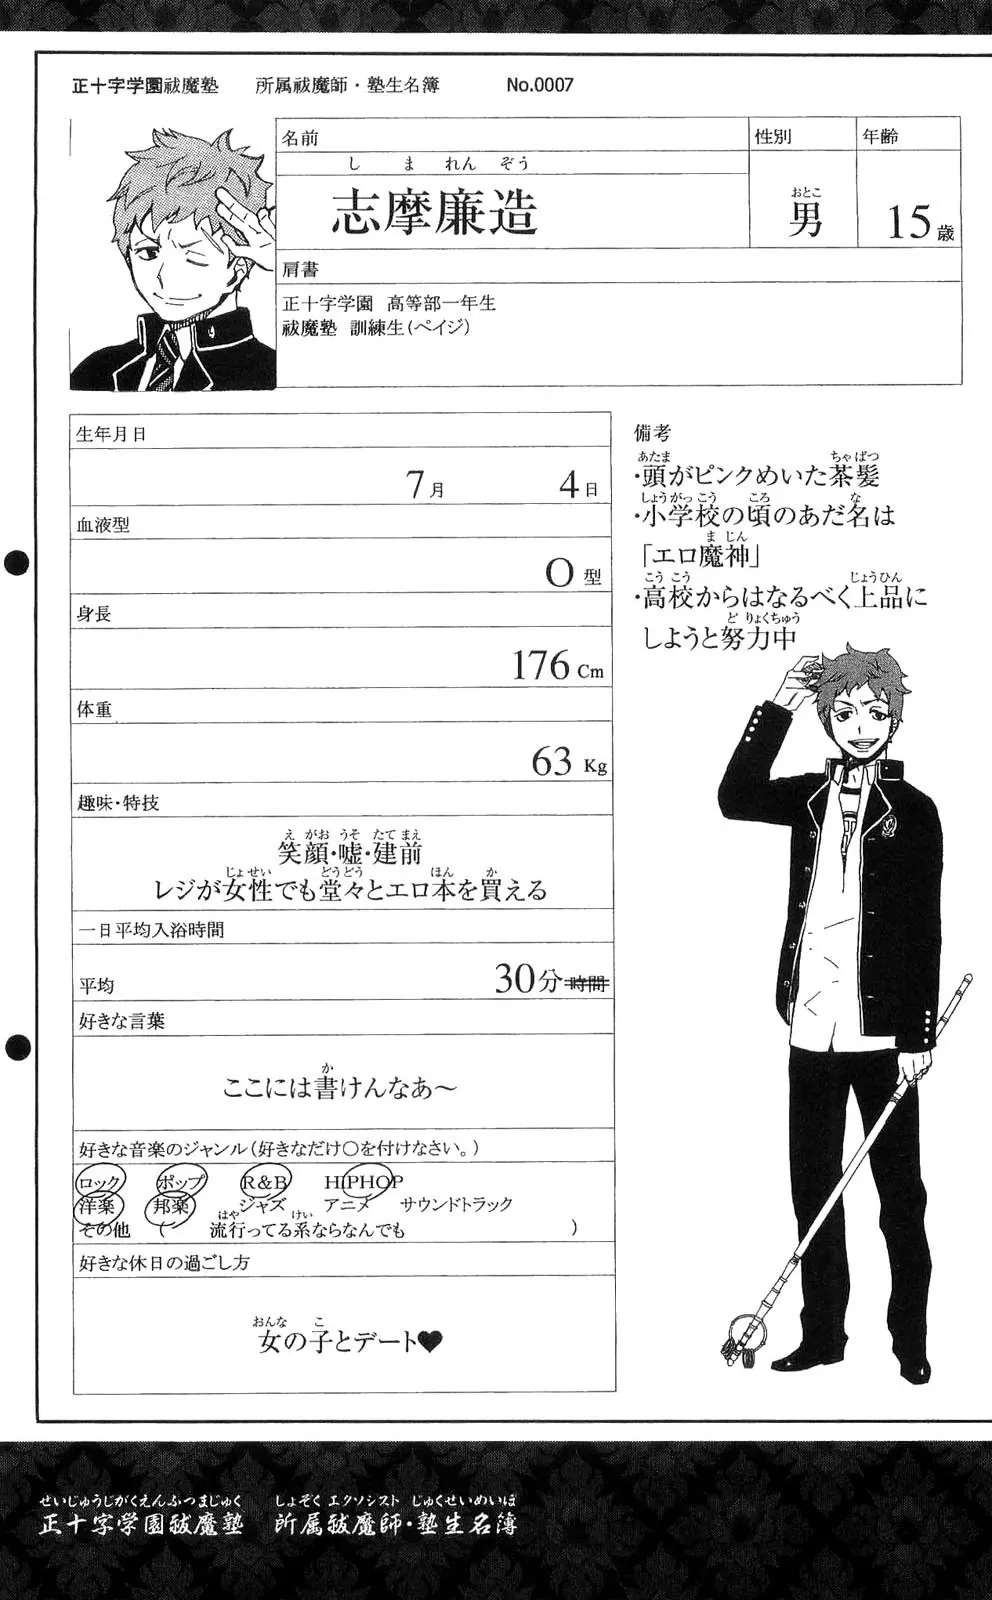 正十字学園祓魔塾　所属祓魔師・塾生名簿　No.0007
名前
し ま れん ぞう
志摩廉造
性別
おとこ
男
年齢
15歳
肩書
正十字学園 高等部一年生
祓魔塾 訓練生(ペイジ)
生年月日
7月 4日
血液型
O型
身長
176Cm
体重
63Kg
趣味・特技
え がお うそ たて まえ
笑顔・嘘・建前
じょ せい どうどう ほん か
レジが女性でも堂々とエロ本を買える
一日平均入浴時間
平均 30分 時間
好きな言葉
か
ここには書けんなあ〜
好きな音楽のジャンル(好きなだけ〇を付けなさい。)
ロック ポップ R&B HIPHOP
洋楽 邦楽 ジャズ アニメ サウンドトラック
はや けい
その他 ( 流行ってる系ならなんでも )
好きな休日の過ごし方
おんな こ
女の子とデート♥
備考
あたま ちゃぱつ
・頭がピンクめいた茶髪
しょうがっこう ころ な
・小学校の頃のあだ名は
ま じん
「エロ魔神」
こう こう じょうひん
・高校からはなるべく上品に
ど りょくちゅう
しようと努力中
せいじゅうじがくえんふつまじゅく　しょぞく エクソシスト じゅくせいめいぼ
正十字学園祓魔塾　所属祓魔師・塾生名簿